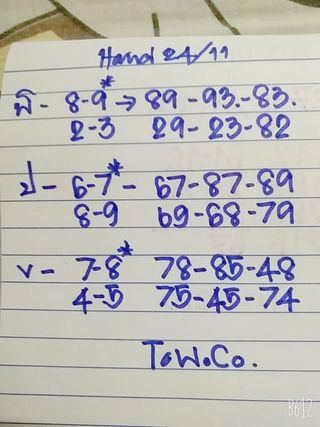 Hanoi 24/11
พิ - 8-9* → 89 - 93. - 83.
2-3 29 - 23 - 82
ป - 6-7* - 67 - 87 - 89
8-9 69 - 68 - 79
V - 7-8* 78 - 85 - 48
4-5 75 - 45 - 74
T.W.Co.
B612